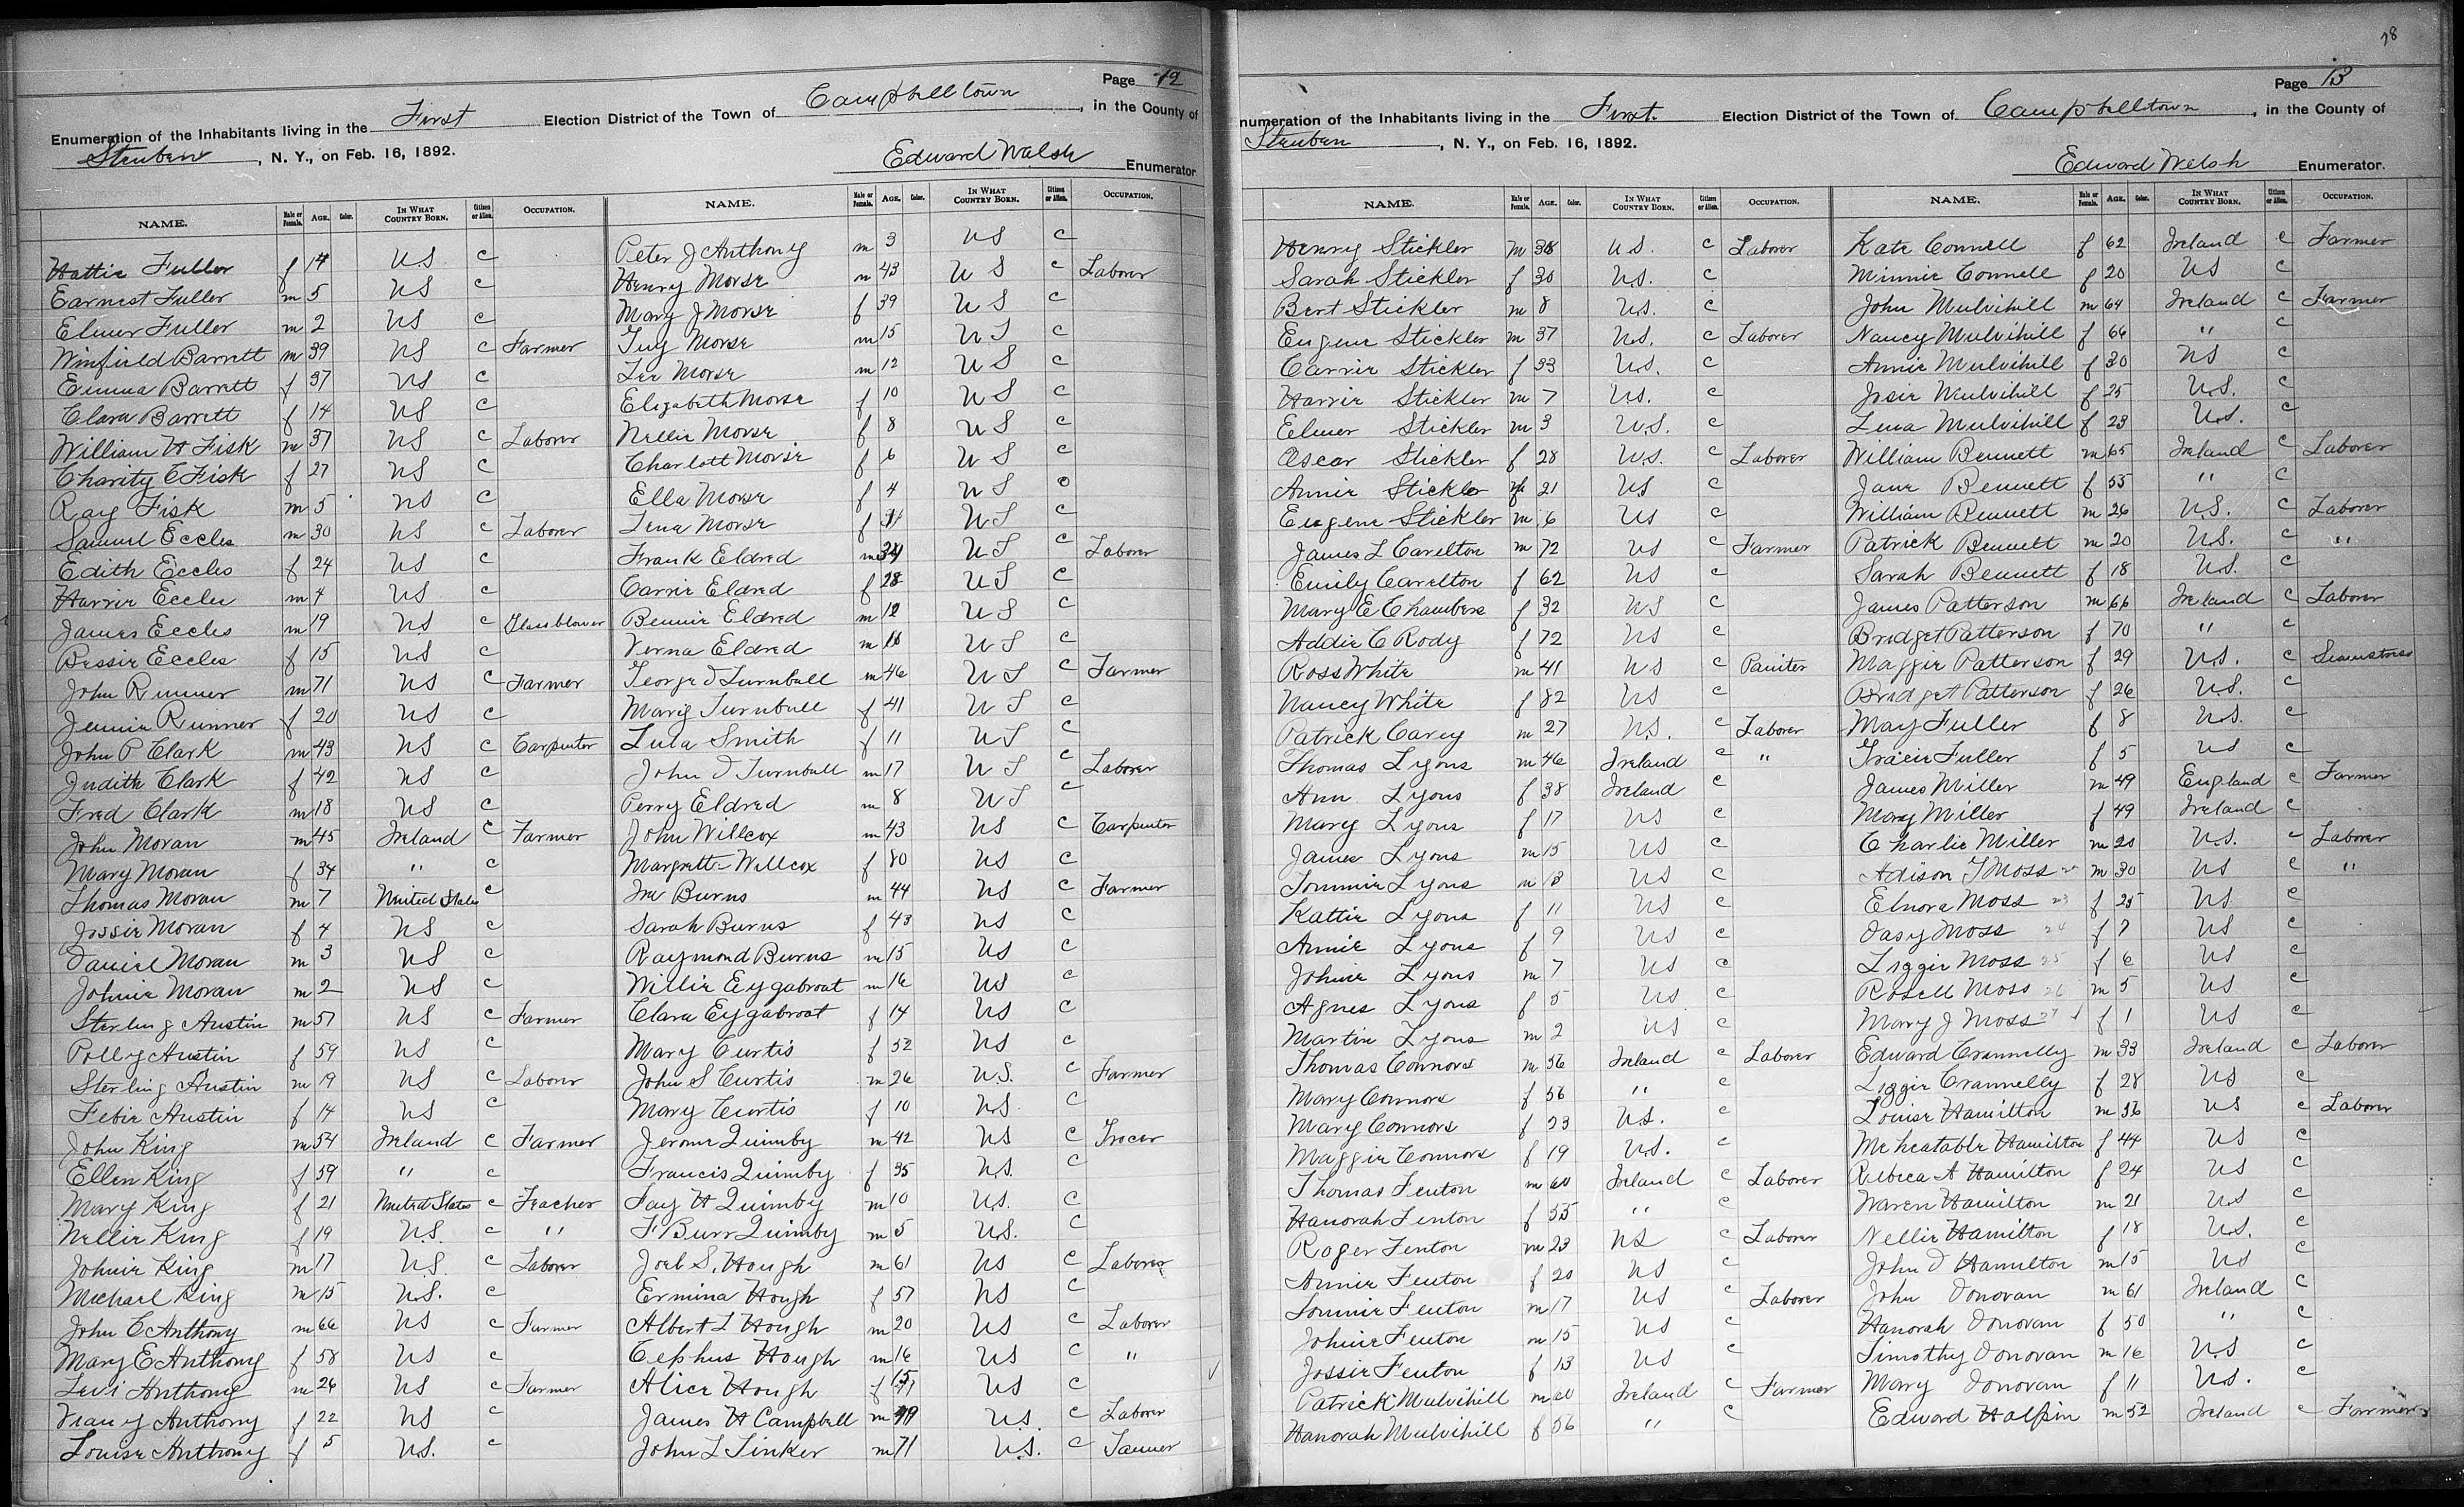 Page 12
Enumeration of the Inhabitants living in the First Election District of the Town of Campbelltown, in the County of
Steuben, N. Y., on Feb. 16, 1892.
Edward Walsh Enumerator
NAME. Male or Female. AGE. Color. IN WHAT COUNTRY BORN. Citizen or Alien. OCCUPATION.
Hattie Fuller f 14 U.S c
Earnest Fuller m 5 US c
Elmer Fuller m 2 US c
Winfield Barrett m 39 US c Farmer
Emma Barrett f 37 US c
Clara Barrett f 14 US c
William H Fisk m 37 US c Laborer
Charity C Fisk f 27 US c
Ray Fisk m 5 US c
Samuel Eccles m 30 US c Laborer
Edith Eccles f 24 US c
Harrie Eccles m 4 US c
James Eccles m 19 US c Glassblower
Bessie Eccles f 15 US c
John Rumner m 71 US c Farmer
Jennie Rumner f 20 US c
John P Clark m 43 US c Carpenter
Judith Clark f 42 US c
Fred Clark m 18 US c
John Moran m 45 Ireland c Farmer
Mary Moran f 34 " c
Thomas Moran m 7 United States c
Jossie Moran f 4 US c
Daniel Moran m 3 US c
Johnie Moran m 2 US c
Sterling Austin m 57 US c Farmer
Polly Austin f 59 US c
Sterling Austin m 19 US c Laborer
Febie Austin f 14 US c
John King m 54 Ireland c Farmer
Ellen King f 59 " c
Mary King f 21 United States c Teacher
Nellie King f 19 U.S. c "
Johnie King m 17 U.S. c Laborer
Michael King m 15 U.S. c
John C Anthony m 66 US c Farmer
Mary E Anthony f 58 US c
Levi Anthony m 26 US c Farmer
Anthony f 22 US c
Louise Anthony f 5 U.S. c
NAME. Male or Female. AGE. Color. IN WHAT COUNTRY BORN. Citizen or Alien. OCCUPATION.
Peter J Anthony m 3 US c
Henry Morse m 43 US c Laborer
Mary J Morse f 39 US c
Guy Morse m 15 US c
Lee Morse m 12 US c
Elizabeth Morse f 10 US c
Nellie Morse f 8 US c
Charlott Morse f 6 US c
Ella Morse f 4 US c
Lena Morse f US c
Frank Eldred m US c Laborer
Carrie Eldred f 28 US c
Bennie Eldred m 12 US c
Verna Eldred m US c
George D Turnbull m 46 US c Farmer
Mary Turnbull f 41 US c
Lula Smith f 11 US c
John D Turnbull m 17 US c Laborer
Perry Eldred m 8 US c
John Willcox m 43 US c Carpenter
Margrett Willcox f 80 US c
Ira Burns m 44 US c Farmer
Sarah Burns f 43 US c
Raymond Burns m 15 US c
Willie Eygabroat m 16 US c
Clara Eygabroat f 14 US c
Mary Curtis f 52 US c
John S Curtis m 26 U.S. c Farmer
Mary Curtis f 10 U.S. c
Jerome Quimby m 42 US c Grocer
Francis Quimby f 35 U.S. c
Fay H Quimby m 10 U.S. c
F Burr Quimby m 5 U.S. c
Joel S. Hough m 61 US c Laborer
Ermina Hough f 57 US c
Albert L Hough m 20 US c Laborer
Cephus Hough m 16 US c "
Alice Hough f 15 US c
James H Campbell m US c Laborer
John L Tinker m 71 U.S. c Tanner
28
Page 13
numeration of the Inhabitants living in the First Election District of the Town of Campbelltown, in the County of
Steuben, N. Y., on Feb. 16, 1892.
Edward Welsh Enumerator.
NAME. Male or Female. AGE. Color. IN WHAT COUNTRY BORN. Citizen or Alien. OCCUPATION.
Henry Stickler m 38 U.S. c Laborer
Sarah Stickler f 30 U.S. c
Bert Stickler m 8 U.S. c
Eugene Stickler m 37 U.S. c Laborer
Carrie Stickler f 33 U.S. c
Harrie Stickler m 7 U.S. c
Elmer Stickler m 3 U.S. c
Oscar Stickler f 28 U.S. c Laborer
Annie Stickler f 21 US c
Eugene Stickler m 6 US c
James L Carelton m 72 US c Farmer
Emily Carelton f 62 US c
Mary E Chambers f 32 US c
Addie C Rody f 72 US c
Ross White m 41 US c Painter
Nancy White f 82 US c
Patrick Carey m 27 U.S. c Laborer
Thomas Lyons m 46 Ireland c "
Ann Lyons f 38 Ireland c
Mary Lyons f 17 US c
James Lyons m 15 US c
Tommie Lyons m 13 US c
Kattie Lyons f 11 US c
Annie Lyons f 9 US c
Johnie Lyons m 7 US c
Agnes Lyons f 5 US c
Martin Lyons m 2 US c
Thomas Connors m 56 Ireland c Laborer
Mary Connors f 56 " c
Mary Connors f 23 U.S. c
Maggie Connors f 19 U.S. c
Thomas Fenton m 60 Ireland c Laborer
Hanorah Fenton f 55 " c
Roger Fenton m 23 US c Laborer
Annie Fenton f 20 US c
Tommie Fenton m 17 US c Laborer
Johnie Fenton m 15 US c
Jossie Fenton f 13 US c
Patrick Mulvihill m 60 Ireland c Farmer
Hanorah Mulvihill f 56 " c
NAME. Male or Female. AGE. Color. IN WHAT COUNTRY BORN. Citizen or Alien. OCCUPATION.
Kate Connell f 62 Ireland c Farmer
Minnie Connell f 20 US c
John Mulvihill m 64 Ireland c Farmer
Nancy Mulvihill f 66 " c
Annie Mulvihill f 30 US c
Josie Mulvihill f 25 U.S. c
Lena Mulvihill f 23 U.S. c
William Bennett m 65 Ireland c Laborer
Jane Bennett f 55 " c
William Bennett m 26 U.S. c Laborer
Patrick Bennett m 20 U.S. c "
Sarah Bennett f 18 U.S. c
James Patterson m 66 Ireland c Laborer
Bridget Patterson f 70 " c
Maggie Patterson f 29 U.S. c Seamstress
Bridget Patterson f 26 U.S. c
May Fuller f 8 U.S. c
Gracie Fuller f 5 US c
James Miller m 49 England c Farmer
Mary Miller f 49 Ireland c
Charlie Miller m 20 U.S. c Laborer
Adison G Moss m 30 US c "
Elnora Moss 23 f 25 US c
Dasy Moss 24 f 7 US c
Lizzie Moss 25 f 6 US c
Rosell Moss 26 m 5 US c
Mary J Moss 27 f 1 US c
Edward Crannelly m 33 Ireland c Laborer
Lizzie Crannelly f 28 US c
Louise Hamilton m 56 US c Laborer
Meheatable Hamilton f 44 US c
Rebeca A Hamilton f 24 US c
Waren Hamilton m 21 US c
Nellie Hamilton f 18 U.S. c
John D Hamilton m 15 US c
John Donovan m 61 Ireland c
Hanorah Donovan f 50 " c
Timothy Donovan m 16 U.S c
Mary Donovan f 11 U.S. c
Edward Halpin m 52 Ireland c Farmer